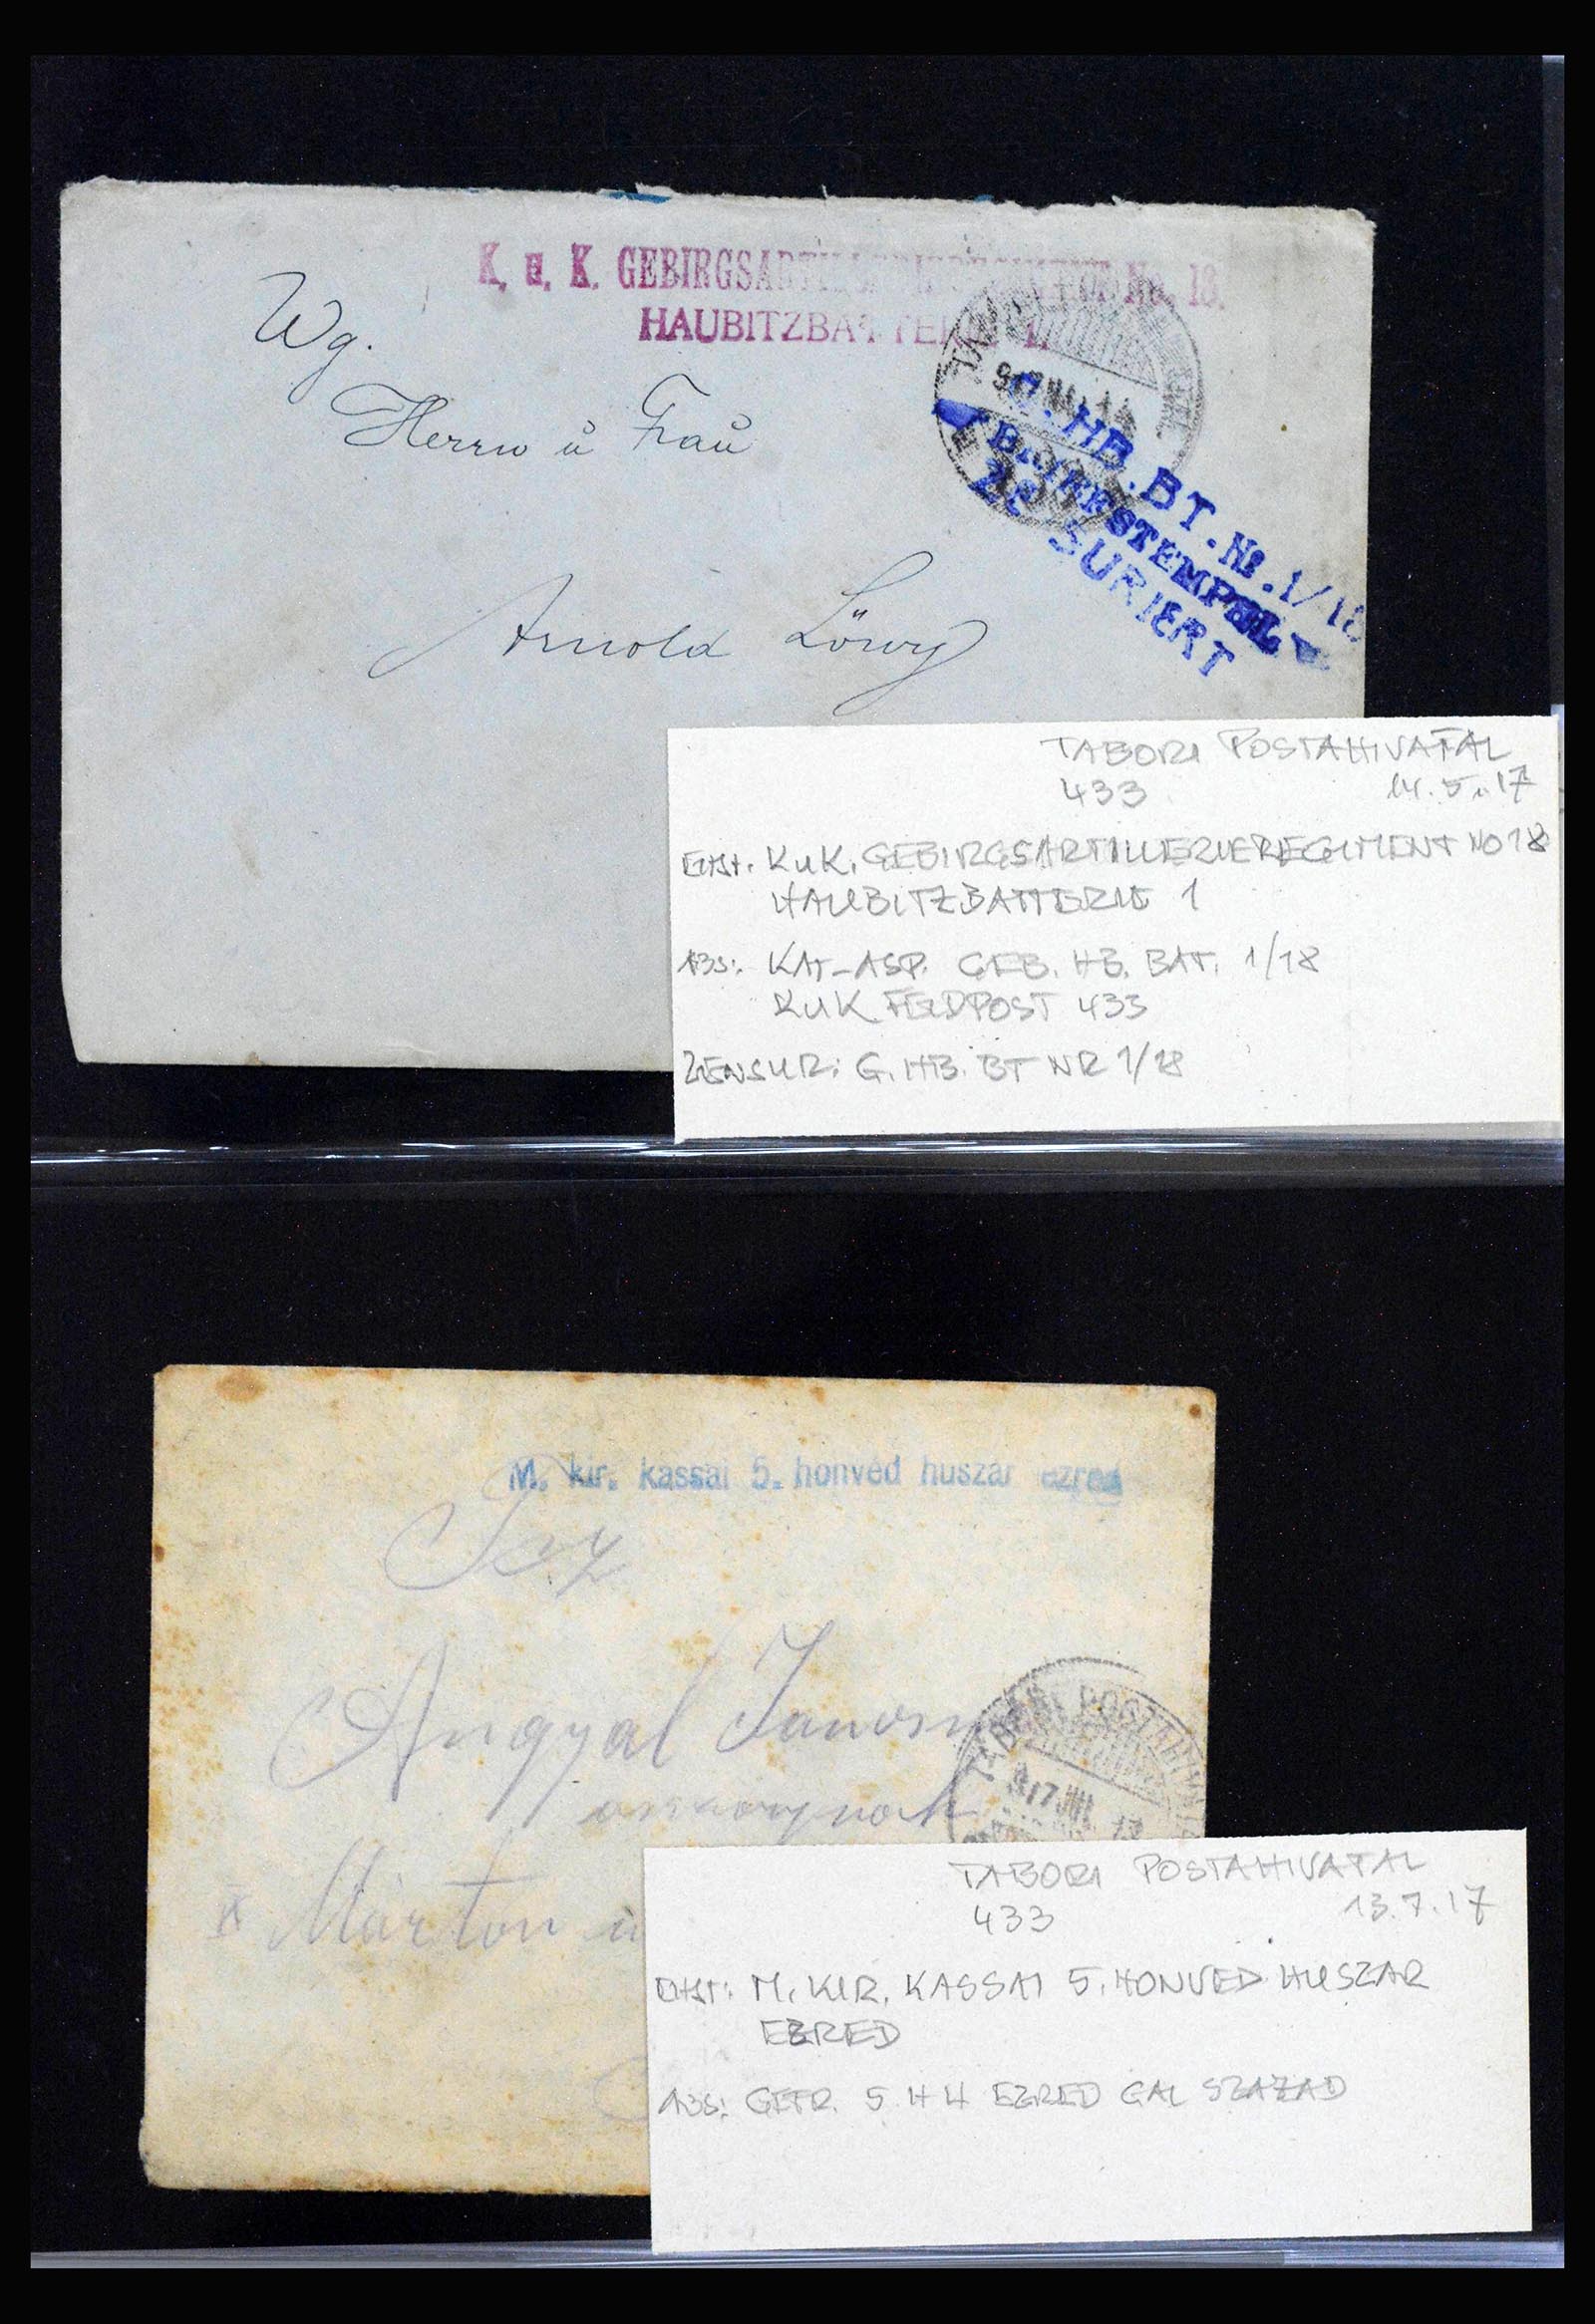 K. u. K. GEBIRGSARTILLERIEREGIMENT No. 18.
HAUBITZBATTERIE 1.
Wg.
Herrn ü Fraü
Arnold Löwy
G. HB. BT. No. 1/18
BRIEFSTEMPEL
ZENSURIERT
TABORI POSTAHIVATAL
433 14.5.17
KuK. GEBIRGSARTILLERIEREGIMENT NO 18
HAUBITZBATTERIE 1
ABS: KAT-ASP. GEB. HB. BAT. 1/18
KUK FELDPOST 433
ZENSUR: G. HB. BT NR 1/18
M. kir. kassai 5. honvéd huszár ezred
Angyal
TÁBORI POSTAHIVATAL
917 13
Márton
TABORI POSTAHIVATAL
433 13.7.17
M. KIR. KASSAI 5. HONVED HUSZAR
EZRED
ABS: GEFR. 5 H H EZRED GAL SZAZAD